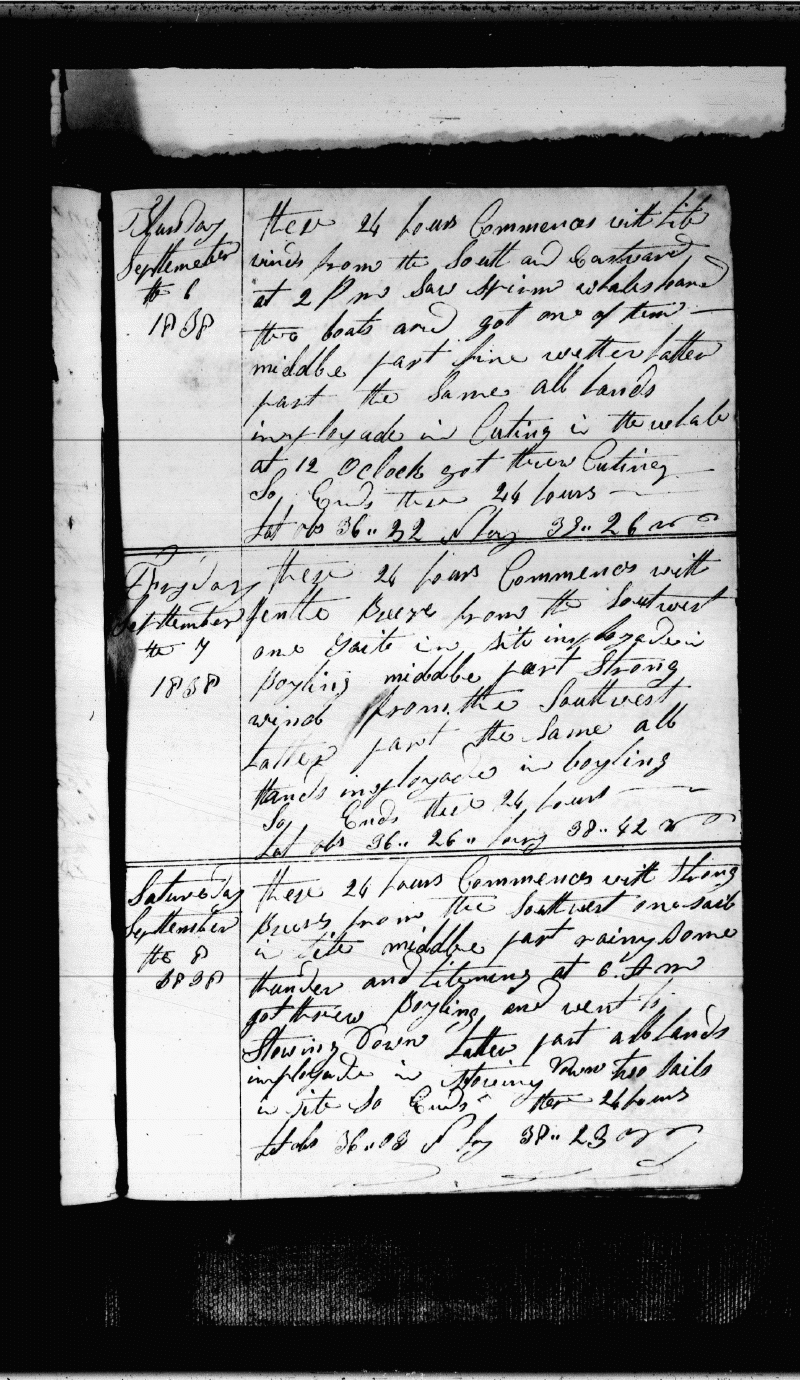 Thursday
Septtember
the 6
1838
these 24 hours Commences with lite
winds from the South and Eastward
at 2 P m Saw Spirm whales
two boats and got one of them
middle part fine wetter latter
part the Same all hands
imployade in Cuting in the whale
at 12 Oclock got threw Cuting
So Ends these 24 hours
Lat obs 36,, 32 N long 38,, 26 w
Fryday
Septtember
the 7
1838
these 24 hours Commences with
gentle Breeze from the Southwest
one Saile in Site imployade in
Boyling middle part Strong
wind from the Southwest
Latter part the Same all
Hands imployade in boyling
So Ends these 24 hours
Lat obs 36,, 26,, long 38,, 42 w
Saturday
Septtember
the 8
1838
these 24 hours Commences with Strong
Breezes from the Southwest one sail
in Site middle part rainy Some
thunder and litening at 6 A m
got threw Boyling and went to
Stowing Down Latter part all hands
imployade in Stowing Down two Sails
in Site So Ends these 24 hours
Lat obs 36,, 08 N long 38,, 23 w